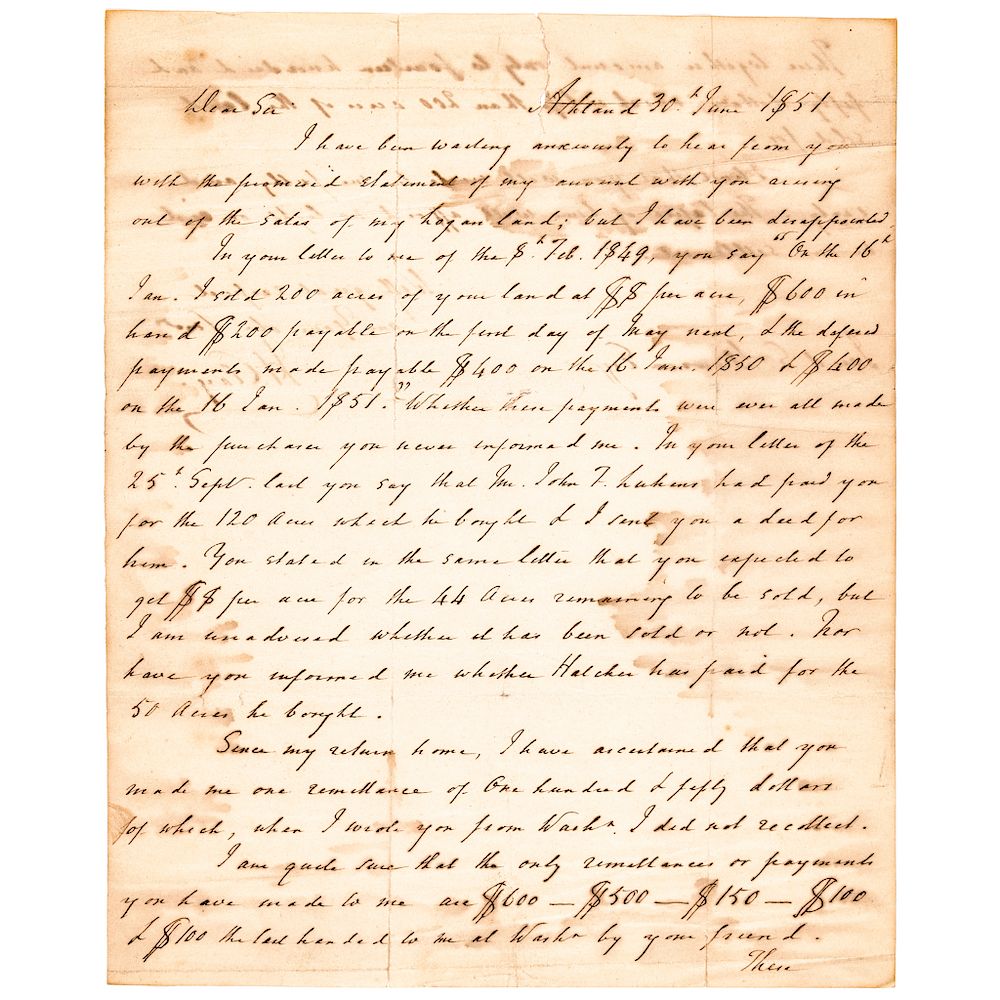 Dear Sir Ashland 30.h June 1851
I have been waiting anxiously to hear from you
with the promised statement of my account with you arising
out of the sales of my Logan land; but I have been disappointed
In your letter to me of the 8.h Feb. 1849, you say "On the 16h
Jan. I sold 200 acres of your land at $8 per acre, $600 in
hand $200 payable on the first day of May next, & the defered
payments made payable $400 on the 16 Jan. 1850 & $400
on the 16 Jan. 1851." Whether these payments were ever all made
by the purchaser you never informed me. In your letter of the
25h. Sept. last you say that Mr. John F. Lukens had paid you
for the 120 Acres which he bought & I sent you a deed for
him. You stated in the same letter that you expected to
get $8 per acre for the 44 Acres remaining to be sold, but
I am unadvised whether it has been sold or not. Nor
have you informed me whether Hatcher has paid for the
50 Acres he bought.
Since my return home, I have ascertained that you
made me one remittance of One hundred & fifty dollars
of which, when I wrote you from Washn. I did not recollect.
I am quite sure that the only remittances or payments
you have made to me are $600 — $500 — $150 — $100
& $100 the last handed to me at Washn by your friend.
These